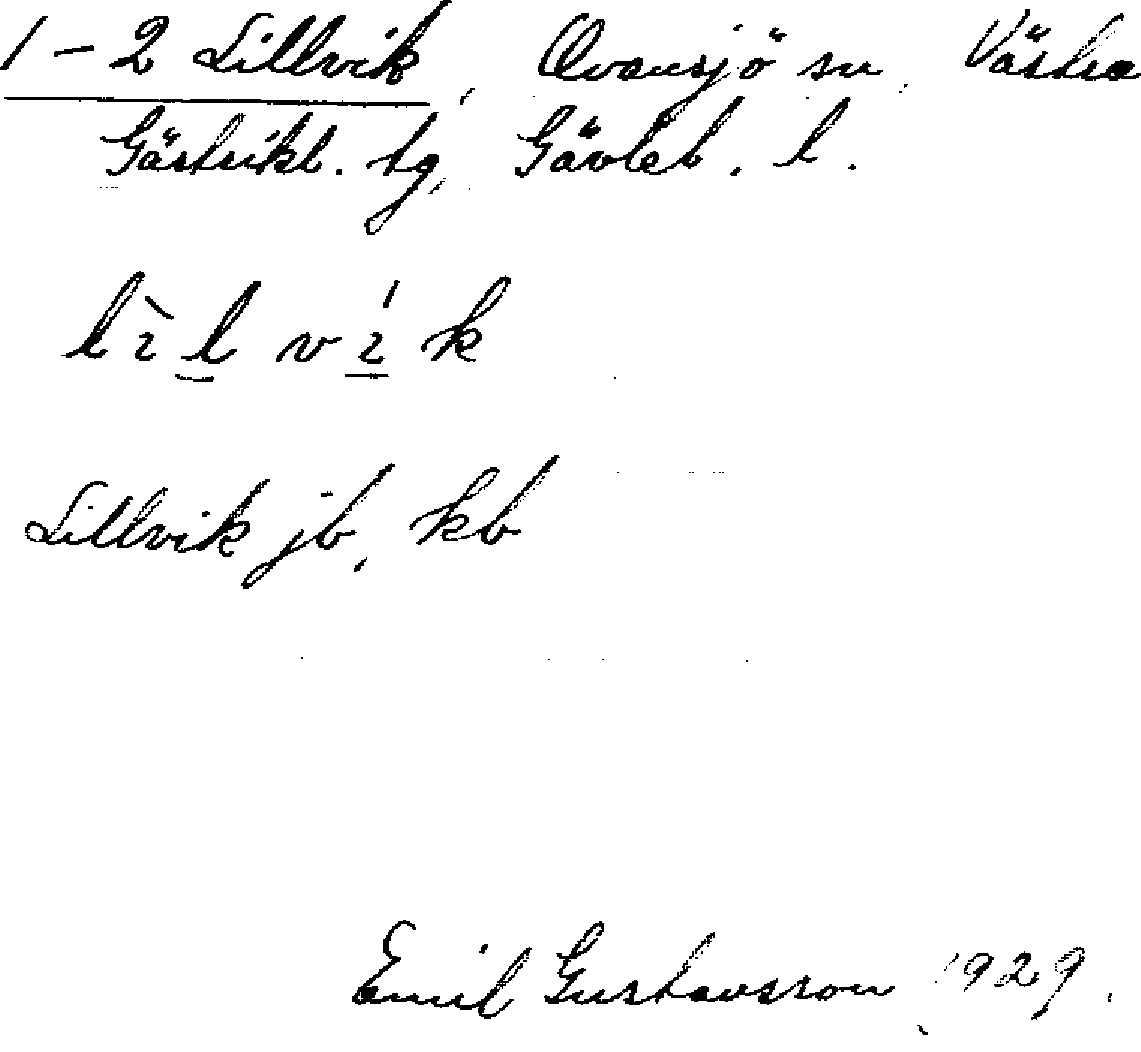 1-2 Lillvik, Ovansjö sn, Västra
Gästrikl. tg, Gävleb. l.
lìl vík
Lillvik jb, kb
Emil Gustavsson, 1929.